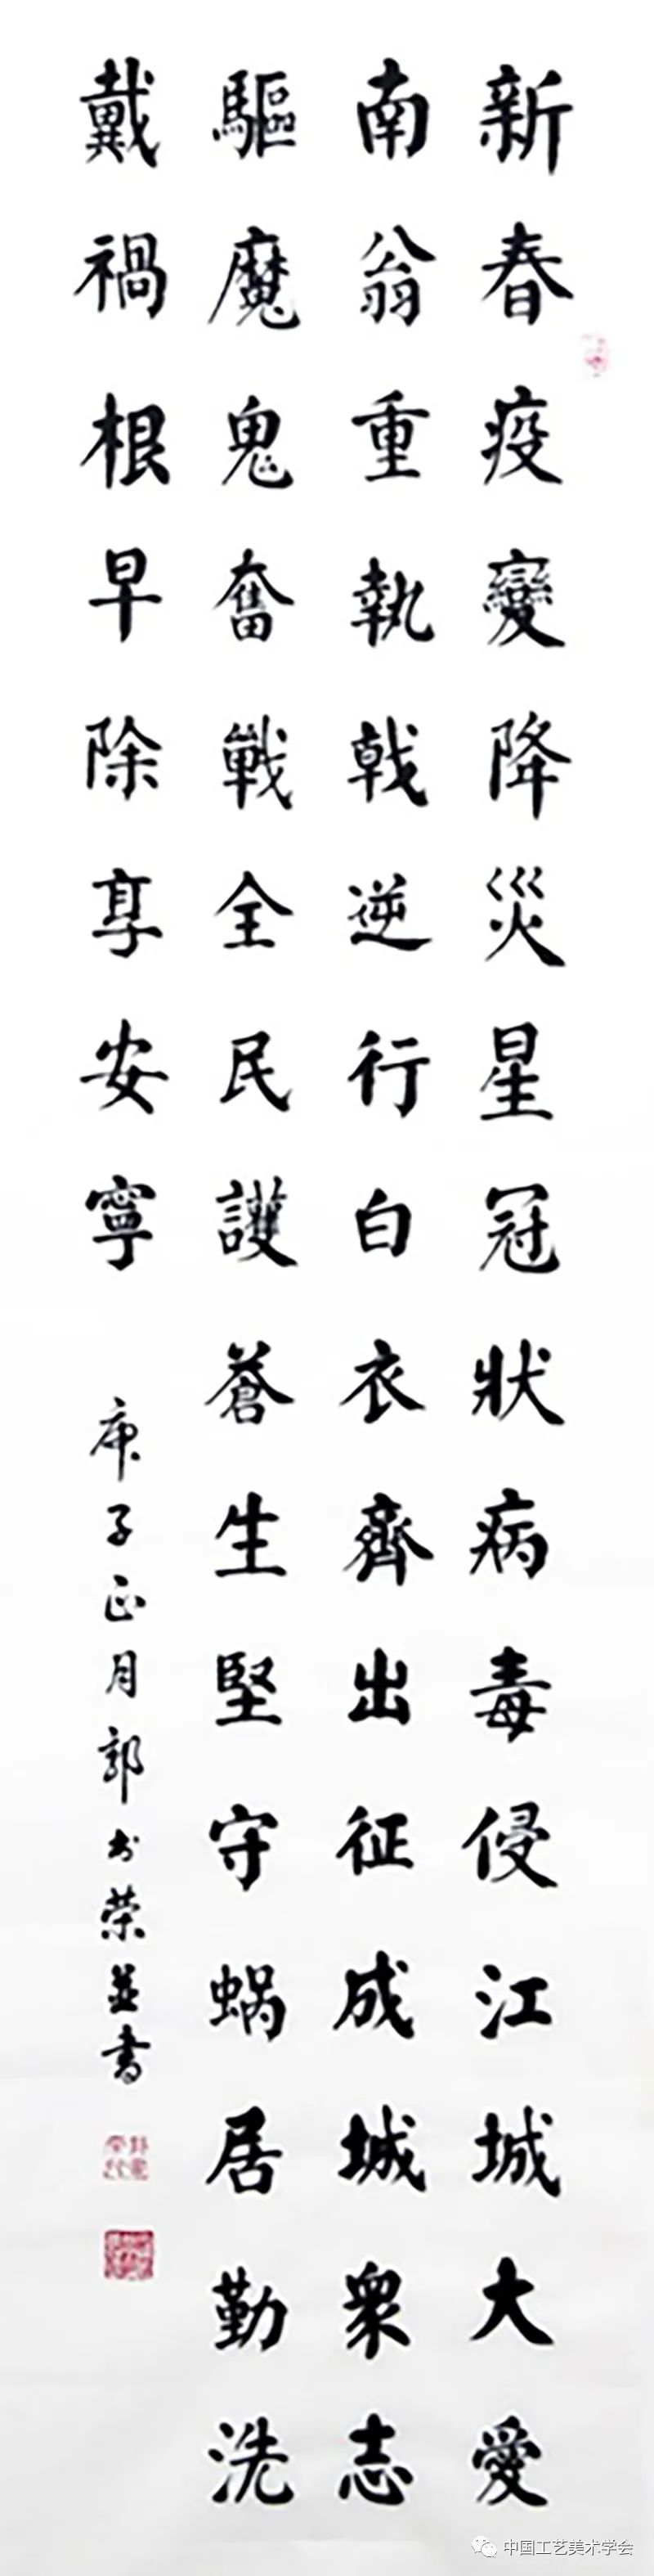 新春疫變降災星冠狀病毒侵江城大愛
南翁重執戟逆行白衣齊出征成城衆志
驅魔鬼奮戰全民護蒼生堅守蜗居勤洗
戴禍根早除享安寧
庚子正月郭书荣並書
中国工艺美术学会